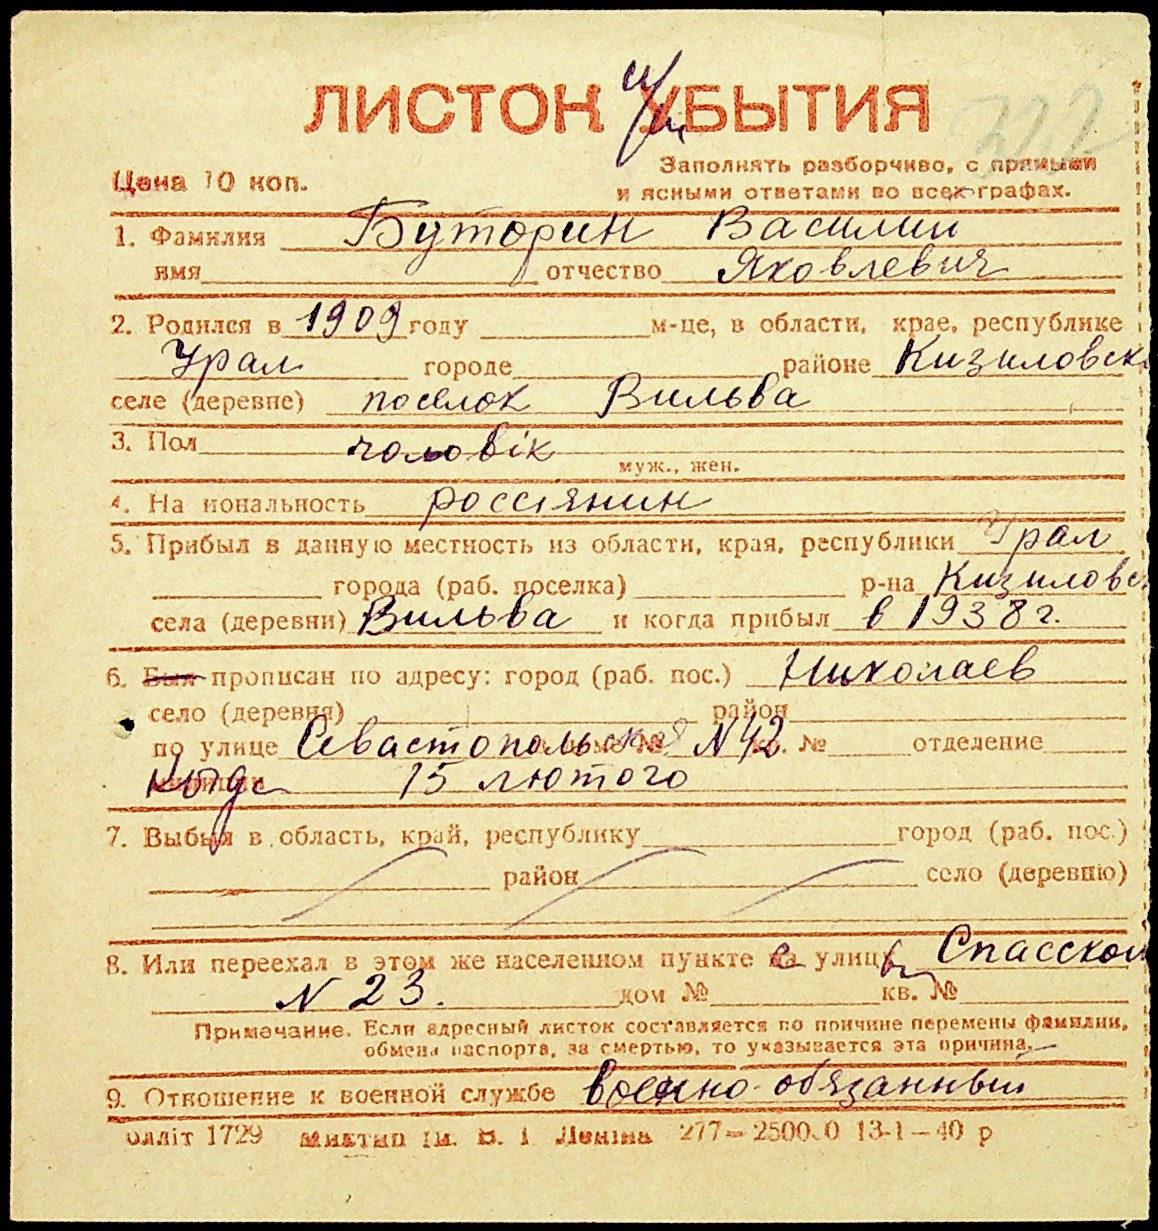 ЛИСТОК УБЫТИЯ
322
Цена 10 коп.
Заполнять разборчиво, с прямыми
и ясными ответами во всех графах.
1. Фамилия Буторин Василий
имя отчество Яковлевич
2. Родился в 1909 году м-це, в области, крае, республике
Урал городе районе Кизиловск
селе (деревне) поселок Вильва
3. Пол чоловік
муж., жен.
4. Национальность россіянин
5. Прибыл в данную местность из области, края, республики Урал
города (раб. поселка) р-на Кизиловс
села (деревни) Вильва и когда прибыл в 1938 г.
6. Был прописан по адресу: город (раб. пос.) Николаев
село (деревня) район
по улице Севастопольская N 42 кв. № отделение
15 лютого
7. Выбыл в область, край, республику город (раб. пос.)
район село (деревню)
8. Или переехал в этом же населенном пункте улицу Спасской
N 23. дом № кв. №
Примечание. Если адресный листок составляется по причине перемены фамилии,
обмена паспорта, за смертью, то указывается эта причина.
9. Отношение к военной службе военно-обязанный
олліт 1729 Миктип ім. В. І Леніна 277—25000 13-1—40 р